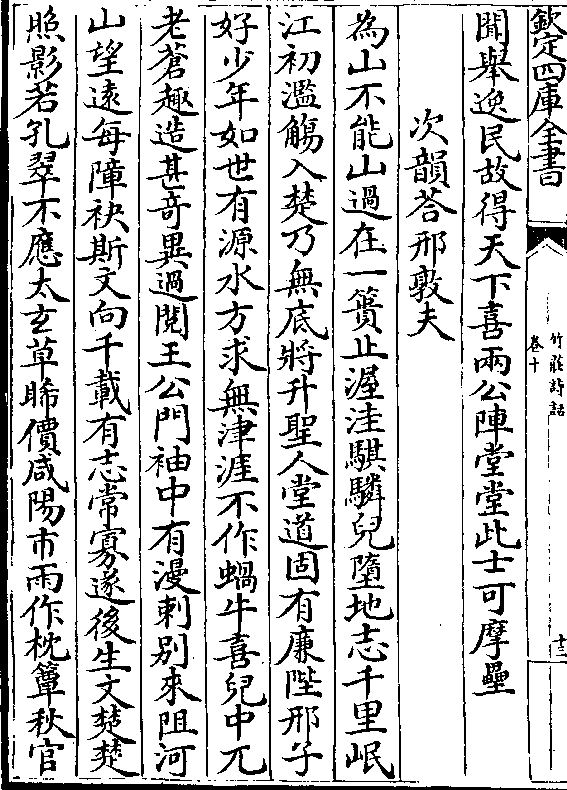 欽定四庫全書
竹莊詩話
卷十
十三
聞舉逸民故得天下喜兩公陣堂堂此士可摩壘
次韻荅邢敦夫
為山不能山過在一簣止渥洼騏驎兒墮地志千里岷
江初濫觴入楚乃無底將升聖人堂道固有廉陛邢子
好少年如世有源水方求無津涯不作蝸牛喜兒中兀
老蒼趣造甚奇異過閱王公門袖中有漫刺别來阻河
山望遠每障袂斯文向千載有志常寡遂後生文楚楚
照影若孔翠不應太玄草睎價咸陽市雨作枕簟秋官